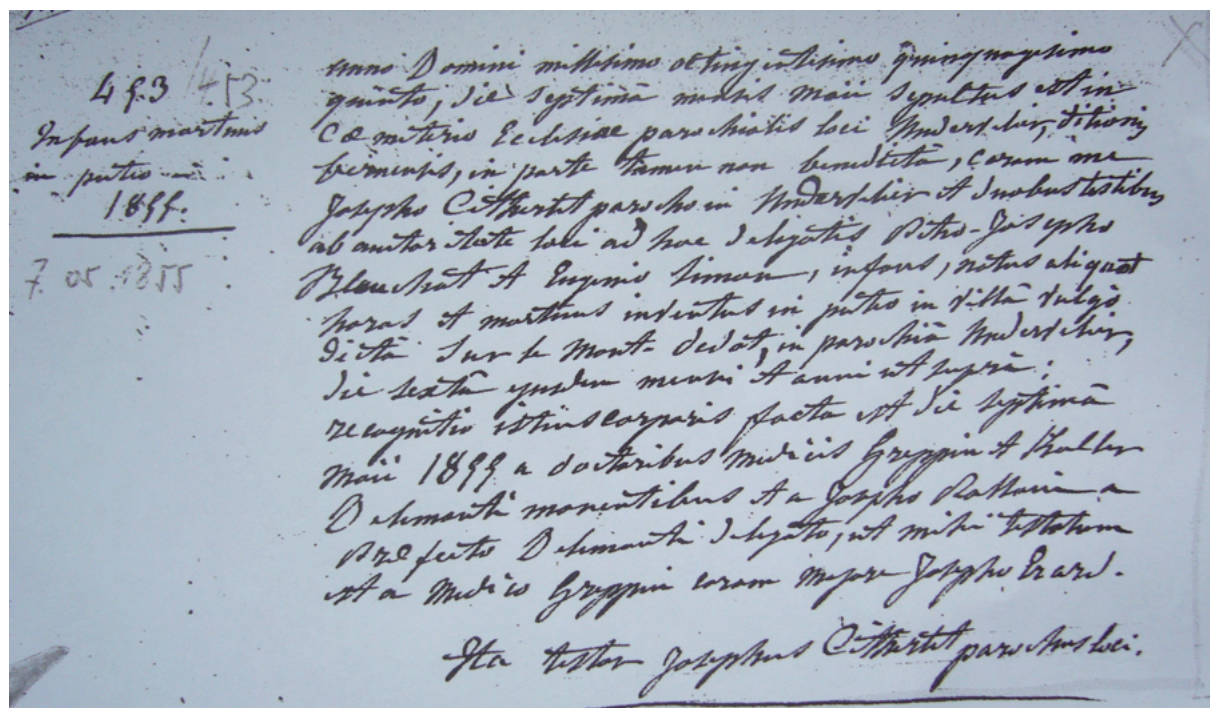 453 453
Infans mortuus
in puteo
1855.
7. 05. 1855
anno Domini millesimo octingentesimo quinquagesimo
quinto, die septimâ mensis maii sepultus est in
Cœmeterio Ecclesiae parochialis loci Undervelier, ditionis
bernensis, in parte tamen non benedictâ, coram me
Josepho Cuttat parocho in Undervelier et duobus testibus
ab auctoritate loci ad hoc delegatis Petro-Josepho
Blanchat et Eugenio Simon, infans, natus aliquot
horas et mortuus inventus in puteo in villâ vulgò
dictâ Sur le Mont- dedot, in parochiâ Undervelier,
die sextâ ejusdem mensis et anni ut suprà;
recognitio istius corporis facta est die septimâ
maii 1855 a doctoribus medicis Greppin et Kaller
Delemonti morantibus et a Josepho a
Præfecto Delemonti delegato, ut mihi testatum
est a Medico Greppin coram majore Josepho Erard.
Ita testor Josephus parochus loci.